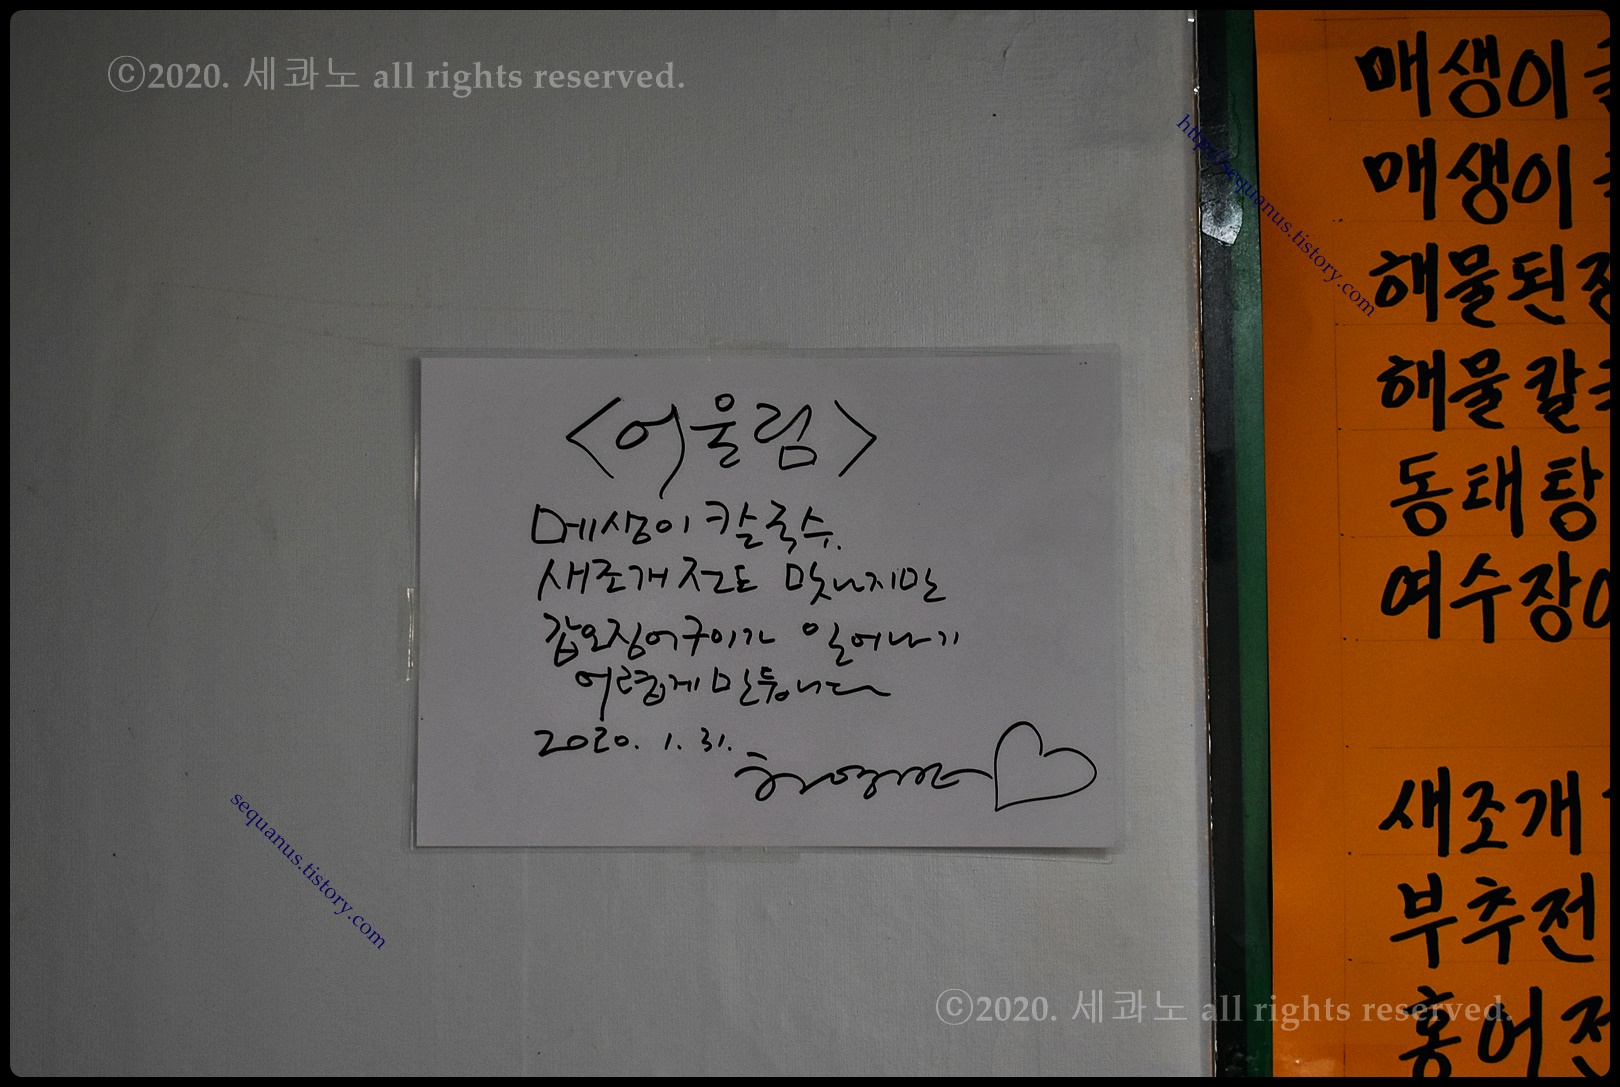 ⓒ2020. 세콰노 all rights reserved.
http://sequanus.tistory.com
<어울림>
메생이 칼국수.
새조개전도 맛나지만
갑오징어구이가 일어나기
어렵게 만듭니다
2020. 1. 31.
sequanus.tistory.com
매생이
매생이
해물된
해물칼
동태탕
여수장어
새조개
부추전
홍어전
ⓒ2020. 세콰노 all rights reserved.